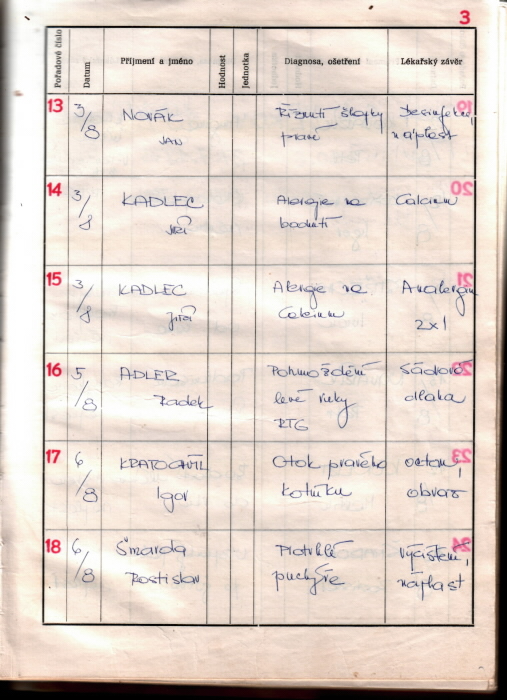 3
Pořadové číslo Datum Příjmení a jméno Hodnost Jednotka Diagnosa, ošetření Lékařský závěr
13 3/8 NOVÁK Říznutí šlapky Desinfekce,
JAN pravé náplast
14 3/8 KADLEC Alergie na Calcium
Jiří bodnutí
15 3/8 KADLEC Alergie na Analergin
Jiří Calcium 2x1
16 5/8 ADLER Pohmoždění Sádrová
Radek levé ruky dlaha
RTG
17 6/8 KRATOCHVÍL Otok pravého octan,
Igor kotníku obvaz
18 6/8 Šmarda Protrhlé vyčištění,
Rostislav puchýře náplast